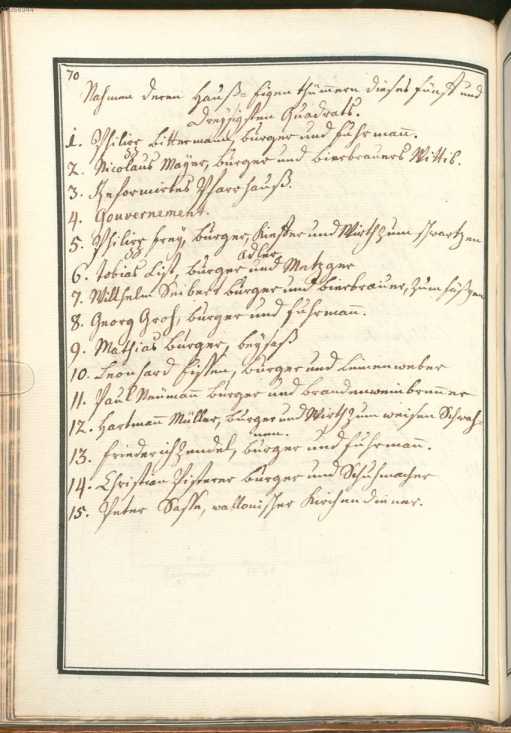 70
Nahmen deren Hauß= Eigenthümmern dieses fünff und
Dreyzigsten Quadrats.
1. Philipp Bittermann, burger und fuhrmann.
2. Nicolaus Mayer, burger und bierbrauers Wittib.
3. Reformirtes Pfarrhauß.
4. Gouvernement.
5. Philipp frey, burger, Kieffer und Wirth zum schwartzen
Adler
6. tobias List, burger und Metzger
7. Willhelm Seibert burger und bierbrauer, zum
8. Georg Groh, burger und fuhrmann.
9. Mathias burger, beysaß
10. Leonhard burger und Leinenweber
11. Paul Neümann burger und brandenweinbrenner
12. Hartmann Müller, burger und Wirth zum weisen Schwah=
nen.
13. friederich Zendel, burger und fuhrmann.
14. Christian Pisterer burger und Schuhmacher
15. Peter Sasse, wallonischer Kirchendiener.